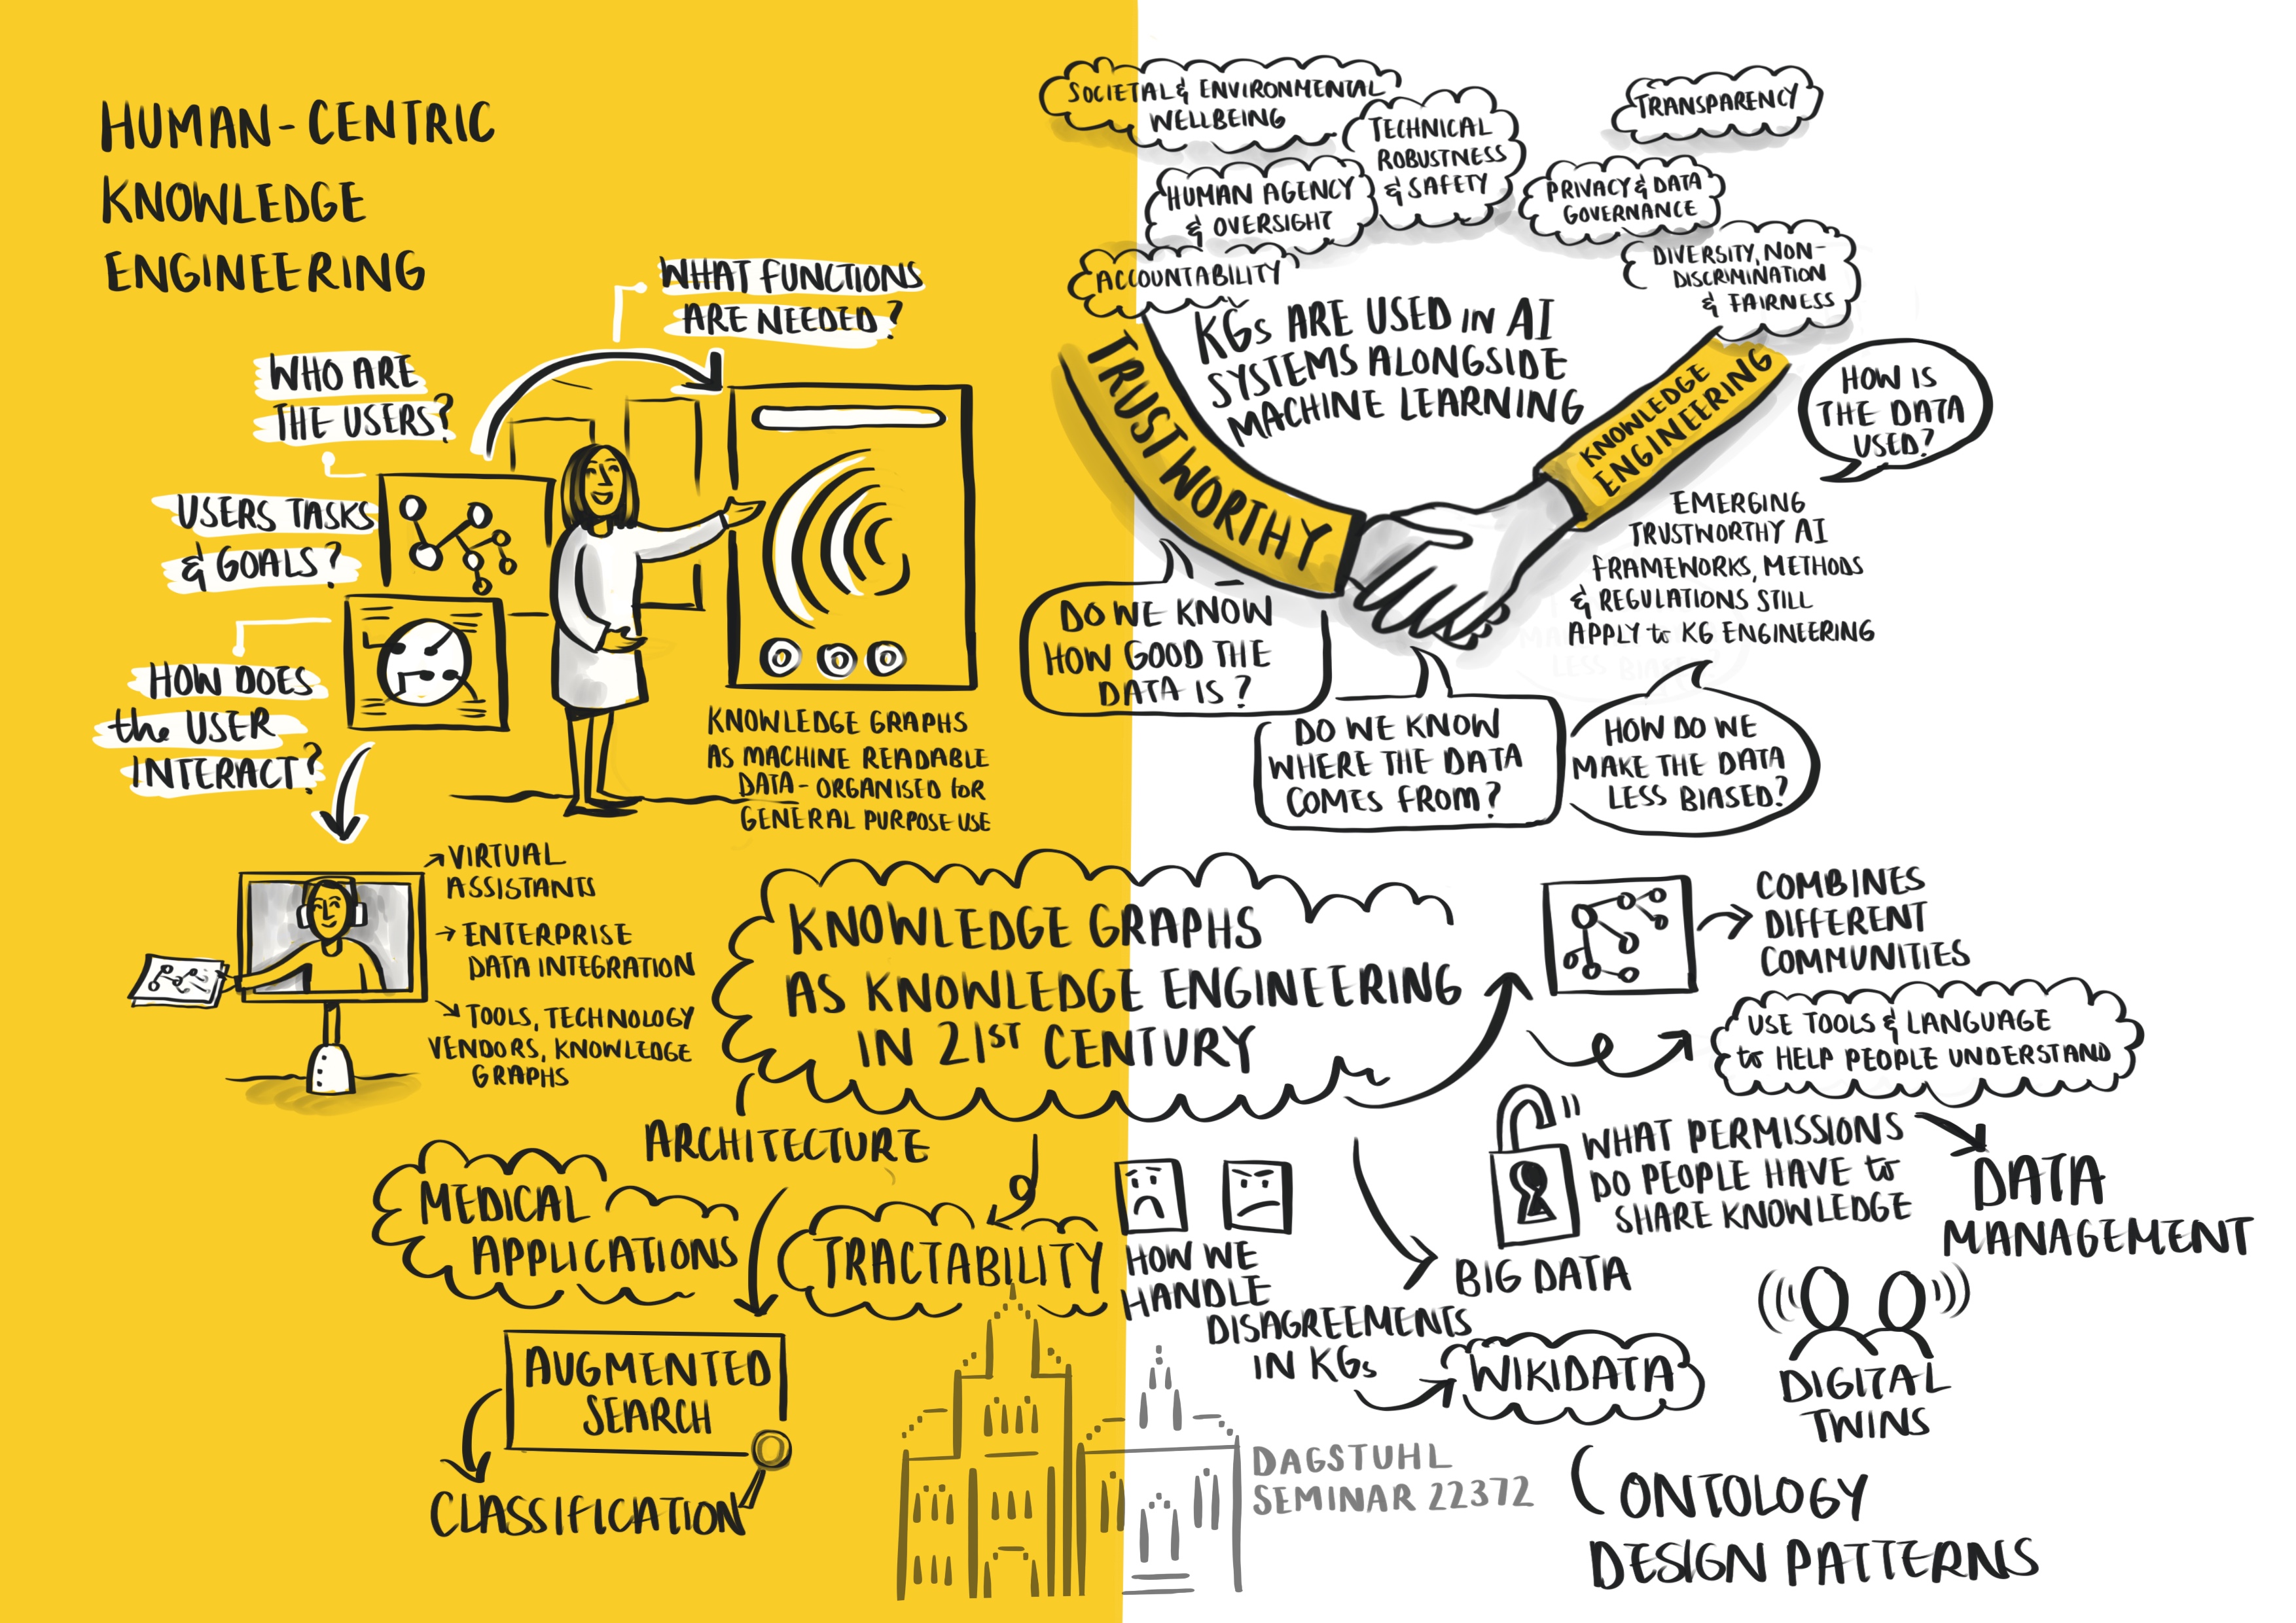 HUMAN-CENTRIC
KNOWLEDGE
ENGINEERING
WHAT FUNCTIONS
ARE NEEDED?
WHO ARE
THE USERS?
USERS TASKS
& GOALS?
HOW DOES
the USER
INTERACT?
KNOWLEDGE GRAPHS
AS MACHINE READABLE
DATA - ORGANISED for
GENERAL PURPOSE USE
VIRTUAL
ASSISTANTS
ENTERPRISE
DATA INTEGRATION
TOOLS, TECHNOLOGY
VENDORS, KNOWLEDGE
GRAPHS
SOCIETAL & ENVIRONMENTAL
WELLBEING
TECHNICAL
ROBUSTNESS
& SAFETY
HUMAN AGENCY
& OVERSIGHT
ACCOUNTABILITY
TRANSPARENCY
PRIVACY & DATA
GOVERNANCE
DIVERSITY, NON-
DISCRIMINATION
& FAIRNESS
KGs ARE USED IN AI
SYSTEMS ALONGSIDE
MACHINE LEARNING
TRUSTWORTHY
KNOWLEDGE
ENGINEERING
HOW IS
THE DATA
USED?
EMERGING
TRUSTWORTHY AI
FRAMEWORKS, METHODS
& REGULATIONS STILL
APPLY to KG ENGINEERING
DO WE KNOW
HOW GOOD THE
DATA IS?
DO WE KNOW
WHERE THE DATA
COMES FROM?
HOW DO WE
MAKE THE DATA
LESS BIASED?
KNOWLEDGE GRAPHS
AS KNOWLEDGE ENGINEERING
IN 21ST CENTURY
COMBINES
DIFFERENT
COMMUNITIES
USE TOOLS & LANGUAGE
to HELP PEOPLE UNDERSTAND
WHAT PERMISSIONS
DO PEOPLE HAVE to
SHARE KNOWLEDGE
DATA
MANAGEMENT
ARCHITECTURE
MEDICAL
APPLICATIONS
TRACTABILITY
HOW WE
HANDLE
DISAGREEMENTS
IN KGs
BIG DATA
WIKIDATA
DIGITAL
TWINS
AUGMENTED
SEARCH
CLASSIFICATION
DAGSTUHL
SEMINAR 22372
ONTOLOGY
DESIGN PATTERNS